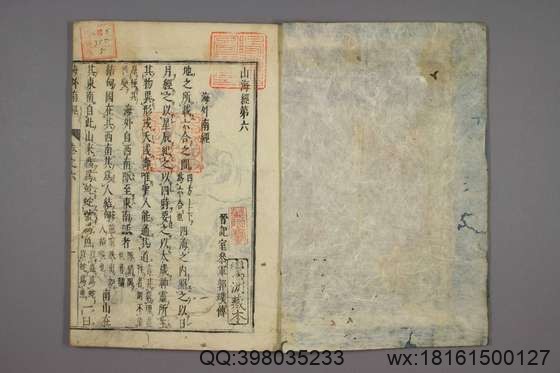 山海經第六
晉記室參軍郭璞傳
海外南經
地之所載六合之間四方上下為六合也四海之内照之以日
月經之以星辰紀之以四時要之以太歲神靈所生
其物異形或夭或壽唯聖人能通其道
海外自西南陬至東南陬者
結匈國在其西南其爲人結匈南山在
其東南自此山來蟲爲蛇蛇號爲魚一曰
海外南經 卷之六
QQ:398035233
wx:18161500127